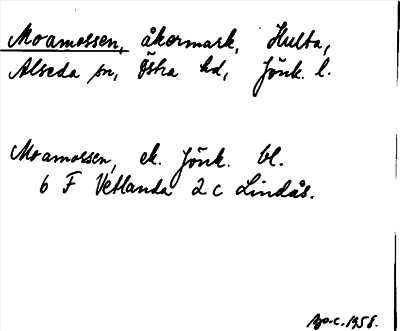 Moamossen, åkermark, Hulta,
Alseda sn, Östra hd, Jönk. l.
Moamossen, ek. Jönk. bl.
6 F Vetlanda 2 c Lindås.
1958.